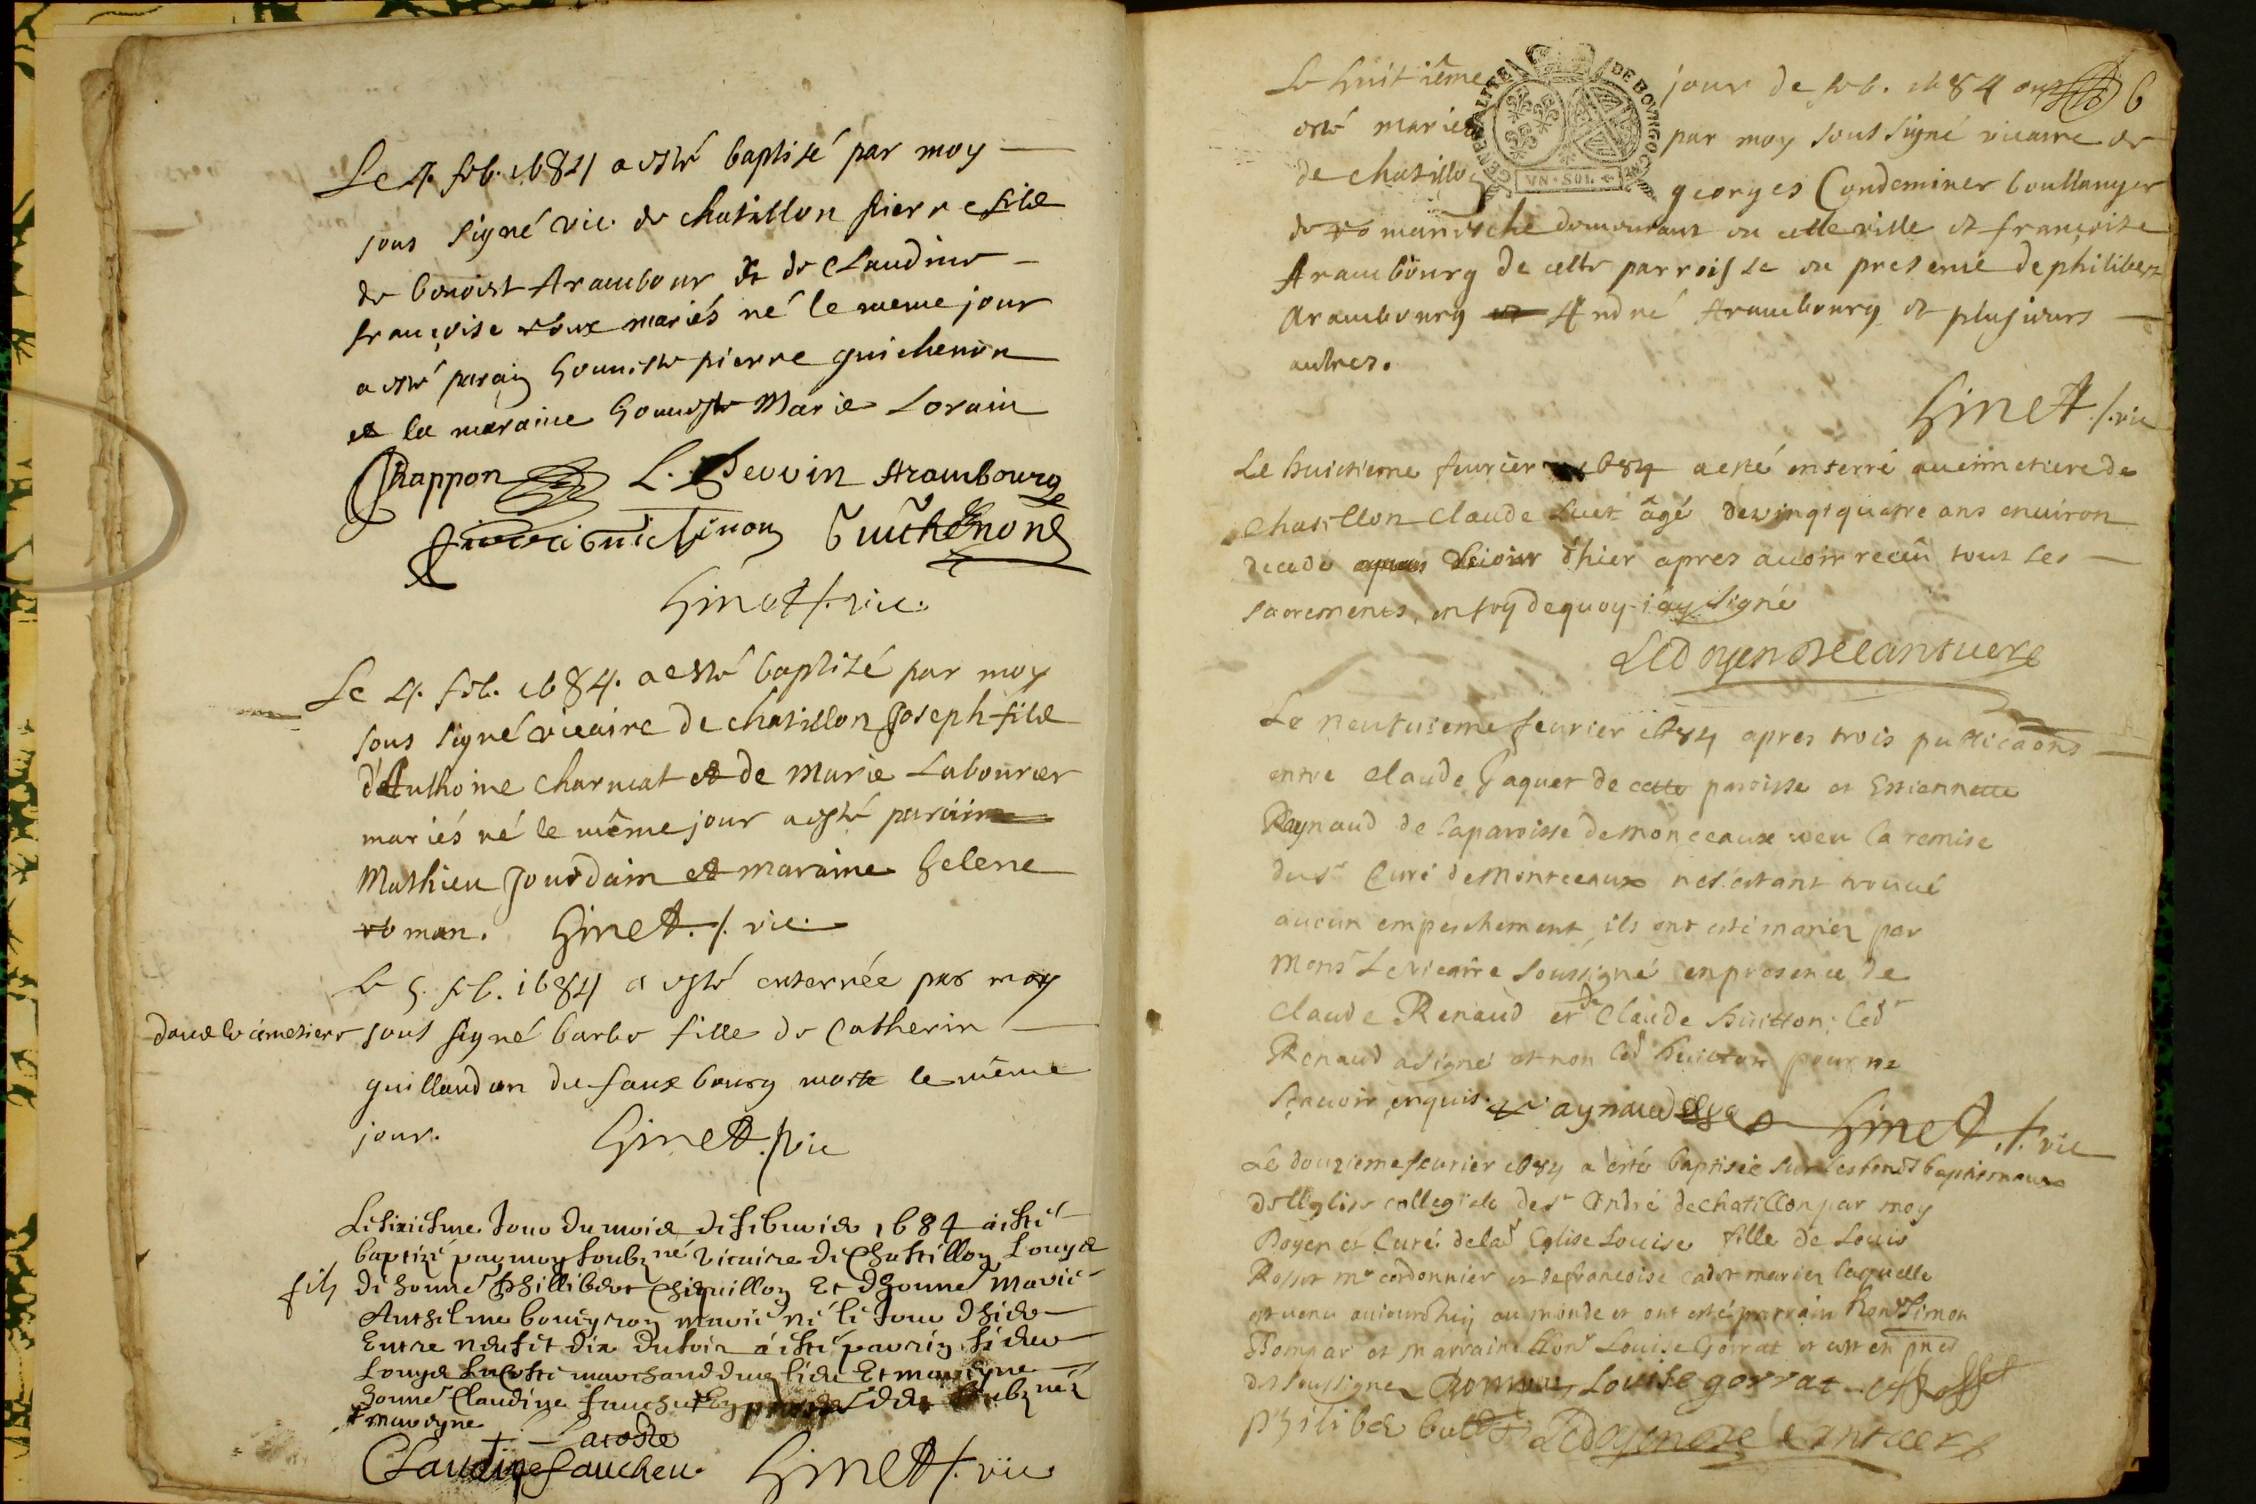 Le 4. feb. 1684 a esté baptisé par moy
sous signé vic. de chatillon pierre filz
de benoist Arambour et de Claudine
françoise roux mariés né le meme jour
a esté parain honneste pierre guichenon
et la maraine honneste Marie Lorain
Rappon L. Arambourg
Guichenon
Ginet p. vic.
Le 4. feb. 1684. a esté baptisé par moy
sous signé vicaire de chatillon Joseph filz
d'Anthoine charnat et de Marie Labourier
mariés né le même jour a esté parain
Mathieu Jourdain et maraine helene
roman. Ginet. p. vic.
Le 5. feb. 1684 a esté enterrée par moy
dans le cimetiere sous signé barbe fille de Catherin
guillaudon du faux bourg morte le même
jour. Ginet p. vic
Le sixiesme Jour du mois de febvrier 1684 a esté
baptizé par moy soubz né vicaire de Chastillon Louys
filz de honne Phillibert Chiquillon Et dhonne Marie
Anthelme mariés né le Jour dhier
Entre neuf et dix du soir a esté parrin sieur
Louys Lacoste marchand dud lieu Et
honne Claudine faucheu
+ mareyne
Lacoste
Claudine faucheu Ginet p. vic
GENERALITE DE BOURGOGNE
VN. SOL.
6
Le huitième jour de feb. 1684 ont
esté mariés par moy sous signé vicaire
de chatillon georges Condeminer boullanger
de romanesche demourant en cette ville et françoise
Arambourg de cette parroisse en presence de philibert
Arambourg André Arambourg et plusieurs
autres.
Ginet p. vic
Le huictieme feurier 1684 a esté enterré au cimetiere de
Chatillon Claude age de vingt quatre ans enuiron
decede d'hier apres auoir receu tout les
sacrements, en foy de quoy i'ay signé
Le doyen
Le neufuieme feurier 1684 apres trois publicaons
entre claude Gaquer de cette paroisse et Estiennette
Raynaud de la paroisse de monceaux veu la remise
du sr Curé de Montceaux ne s'estant trouué
aucun empeschement, ils ont esté mariez par
Monsr Le vicaire soussigné en presence de
Claude Renaud et de Claude huitton; led
Renaud a signé et non led huitton pour ne
sçauoir enquis. Ginet. p. vic
Le douzieme feurier 1684 a esté baptisée sur les fonds baptismaux
de l'Eglise collegiale de st André de chatillon par moy
Doyen et Curé de lad Eglise Louise fille de Louis
Rosset me cordonnier et de francoise cadot mariez laquelle
est venu auiourd'huy au monde et ont esté parrain honr Simon
et marraine honr Louise Gorrat
des soussignez Louise gorrat Rosset
philiber Le doyen